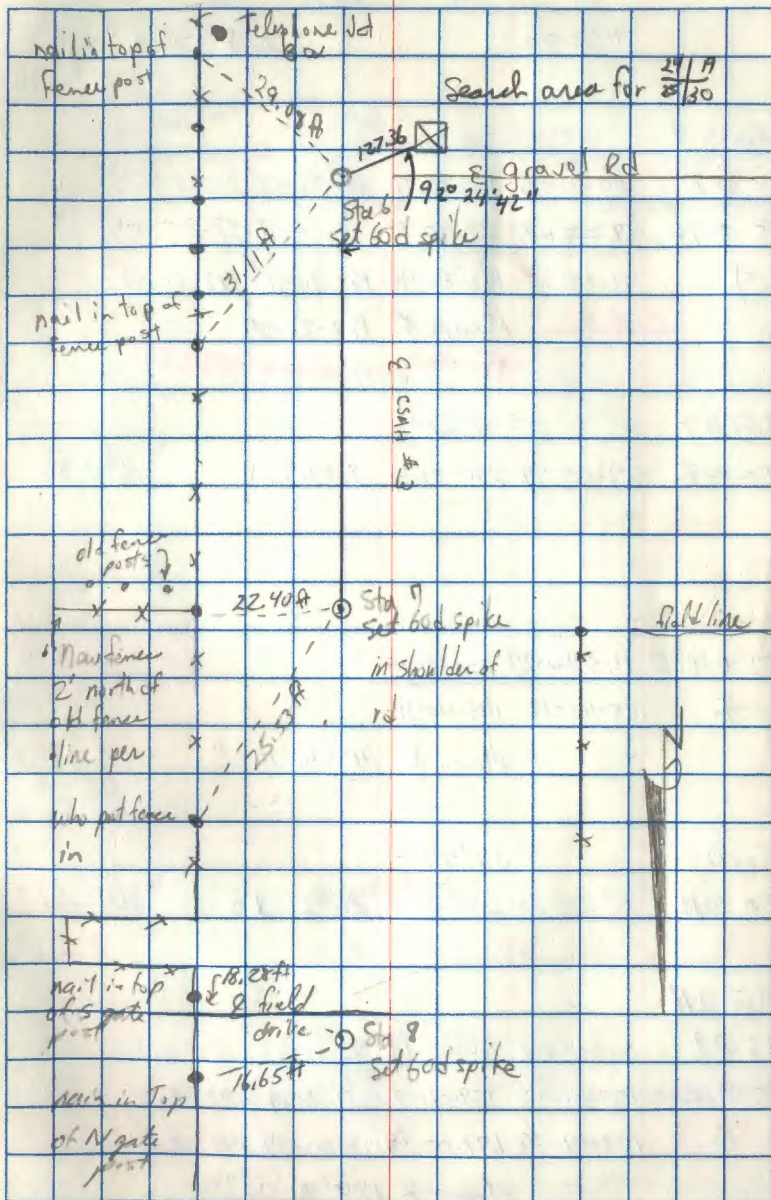 Telephone Jct
Box
nail in top of
fence post
29.08 ft
Search area for 24 19
25 30
127.36
℄ gravel Rd
92° 24' 42"
Sta 6
Set 60d spike
31.11 ft
nail in top of
fence post
℄ CSAH #3
old fence
posts
22.40 ft
Sta 7
Set 60d spike
in shoulder of
rd
field line
New fence
2' north of
old fence
line per
who put fence
in
25.53 ft
N
18.28 ft
nail in top
of S gate
post
℄ field
drive
Sta 8
Set 60d spike
16.65 ft
nail in Top
of N gate
post